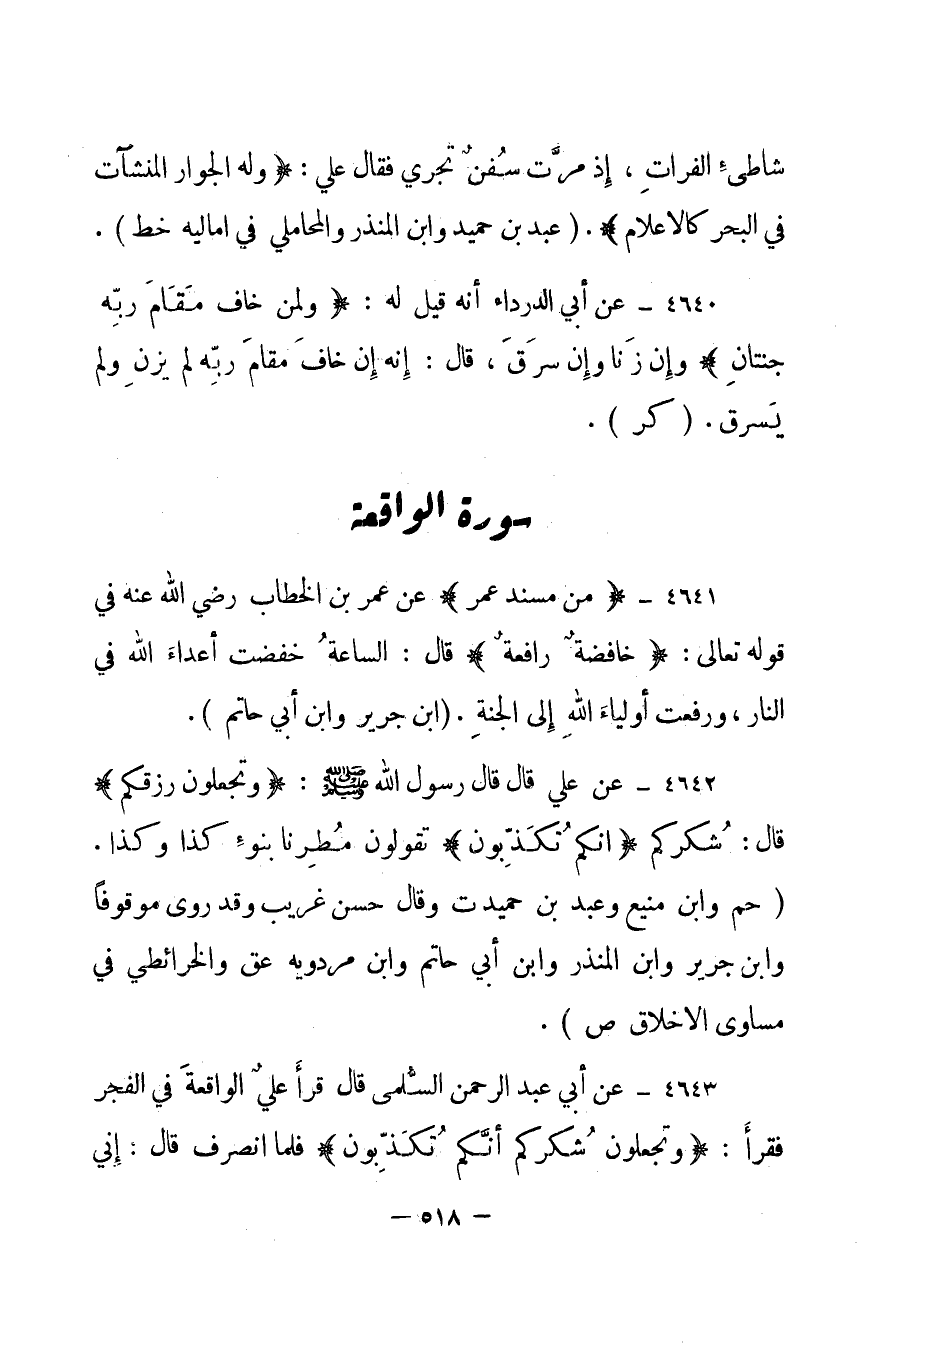 شاطىءِ الفراتِ ، إِذ مرَّت سُفنٌ تجري فقال علي : ﴿ وله الجوار المنشآت
في البحر كالاعلام ﴾ . ( عبد بن حميد وابن المنذر والمحاملي في اماليه خط ) .
٤٦٤٠ ـ عن أبي الدرداء أنه قيل له : ﴿ ولمن خاف مَقَامَ ربِّه
جنتانِ ﴾ وإِن زَنا وإِن سرَقَ ، قال : إِنه إِن خافَ مقامَ ربِّه لم يزنِ ولم
يَسرق . ( كر ) .
سورة الواقعة
٤٦٤١ ـ ﴿ من مسند عمر ﴾ عن عمر بن الخطاب رضي الله عنه في
قوله تعالى : ﴿ خافضةٌ رافعةٌ ﴾ قال : الساعةُ خفضت أعداءَ الله في
النار ، ورفعت أولياءَ اللهِ إِلى الجنةِ . (ابن جرير وابن أبي حاتم ) .
٤٦٤٢ ـ عن علي قال قال رسول الله ﷺ : ﴿ وتجعلون رزقكم ﴾
قال : شُكركم ﴿ انكم تُكَذِّبون ﴾ تقولون مُطِرنا بنوءِ كذا وكذا .
( حم وابن منيع وعبد بن حميد ت وقال حسن غريب وقد روى موقوفاً
وابن جرير وابن المنذر وابن أبي حاتم وابن مردويه عق والخرائطي في
مساوى الاخلاق ص ) .
٤٦٤٣ ـ عن أبي عبد الرحمن السُّلمى قال قرأَ عليٌ الواقعةَ في الفجر
فقرأَ : ﴿ وتجعلون شُكركم أنَّكم تُكَذِّبون ﴾ فلما انصرف قال : إِني
— ٥١٨ —